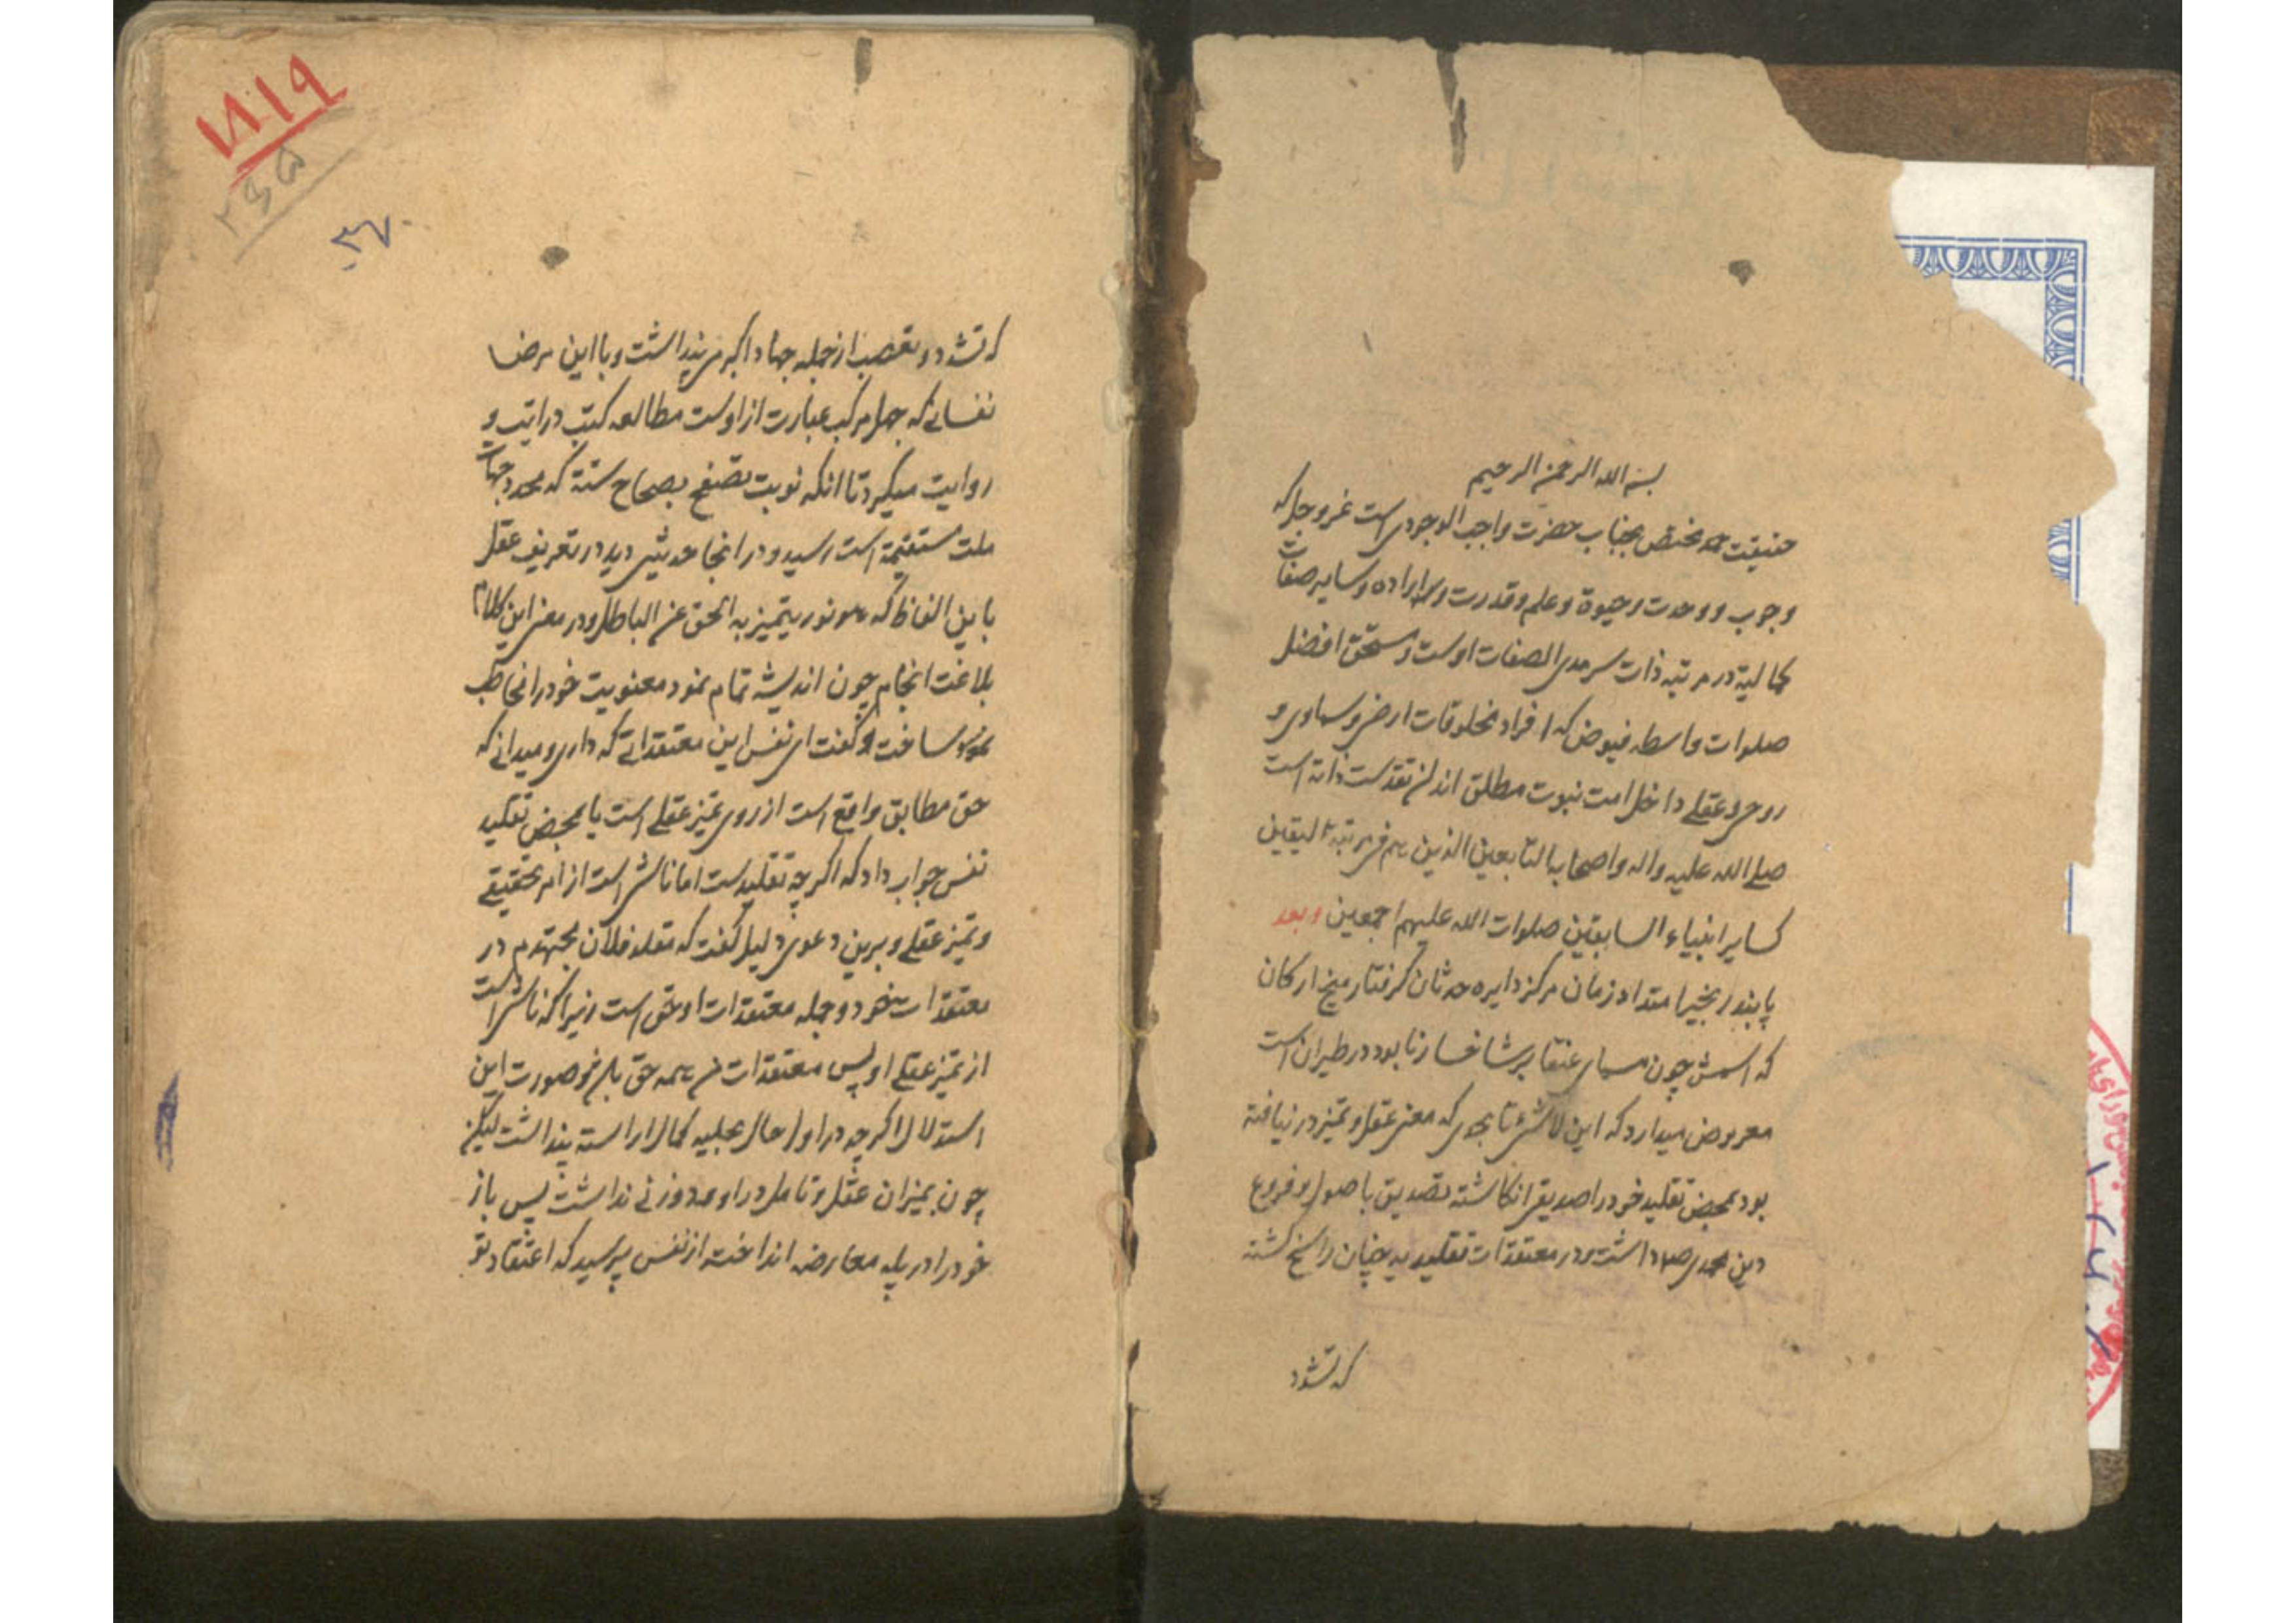 بسم الله الرحمن الرحیم
حقیقت حمد مختص بجناب حضرت واجب الوجودی است عز و جل که
وجوب و وحدت و حیوة و علم و قدرت و اراده و سایر صفات
کمالیة در مرتبه ذات سرمدی الصفات اوست و مستحق افضل
صلوات واسطه فیوض که افراد مخلوقات ارضی و سماوی و
روحی و عقلے داخل امت نبوت مطلق اند تقدست ذاته است
صلے الله علیه و اله و اصحابه التابعین الذین هم فی مرتبة الیقین
کسایر انبیاء السابقین صلوات الله علیهم اجمعین و بعد
پابند زنجیر امتداد زمان مرکز دایره حدثان گرفتار میخ ارکان
که اسمش چون مسمای عنقا بر شاخسار نابود در طیران است
معروض میدارد که این لاشئ تا بحدی که معنی عقل و تمیز در نیافته
بود بمحض تقلید خود را صدیق انکاشته تصدیق باصول و فروع
دین محمدی داشت و در معتقدات تقلیدیه چنان راسخ کشته
که تشدد
۱۸۱۹
۲۶۵
۳۷۰
که تشدد و تعصب از جمله جهاد اکبر می پنداشت و با این مرض
نفسانے که جهل مرکب عبارت از اوست مطالعه کتب درایت و
روایت میکرد تا انکه نوبت تصفح بصحاح ستة که محدد جهات
ملت مستقیمة است رسید و در انجا حدیثی دید در تعریف عقل
باین الفاظ که هو نور یتمیز به الحق عن الباطل و در معنی این کلام
بلاغت انجام چون اندیشه تمام نمود معنویت خود را مخاطب
ساخت و کفت ای نفس این معتقداتے که داری و میدانے که
حق مطابق واقع است از روی تمیز عقلے است یا بمحض تقلید
نفس جواب داد که اکرچه تقلیدست اما ناشی است از امر تحقیقے
و تمیز عقلے و برین دعوی دلیل کفت که مقلد فلان مجتهدم در
معتقدات خود و جمله معتقدات او حق است زیرا که ناشی است
از تمیز عقلے او پس معتقدات من همه حق باشد و صورت این
استدلال اکرچه در اول حال بحلیه کمال اراسته پنداشت لیکن
چون بمیزان عقل و تامل در او مد وزنے نداشت پس باز
خود را در پله معارضه انداخته از نفس پرسید که اعتقاد تو